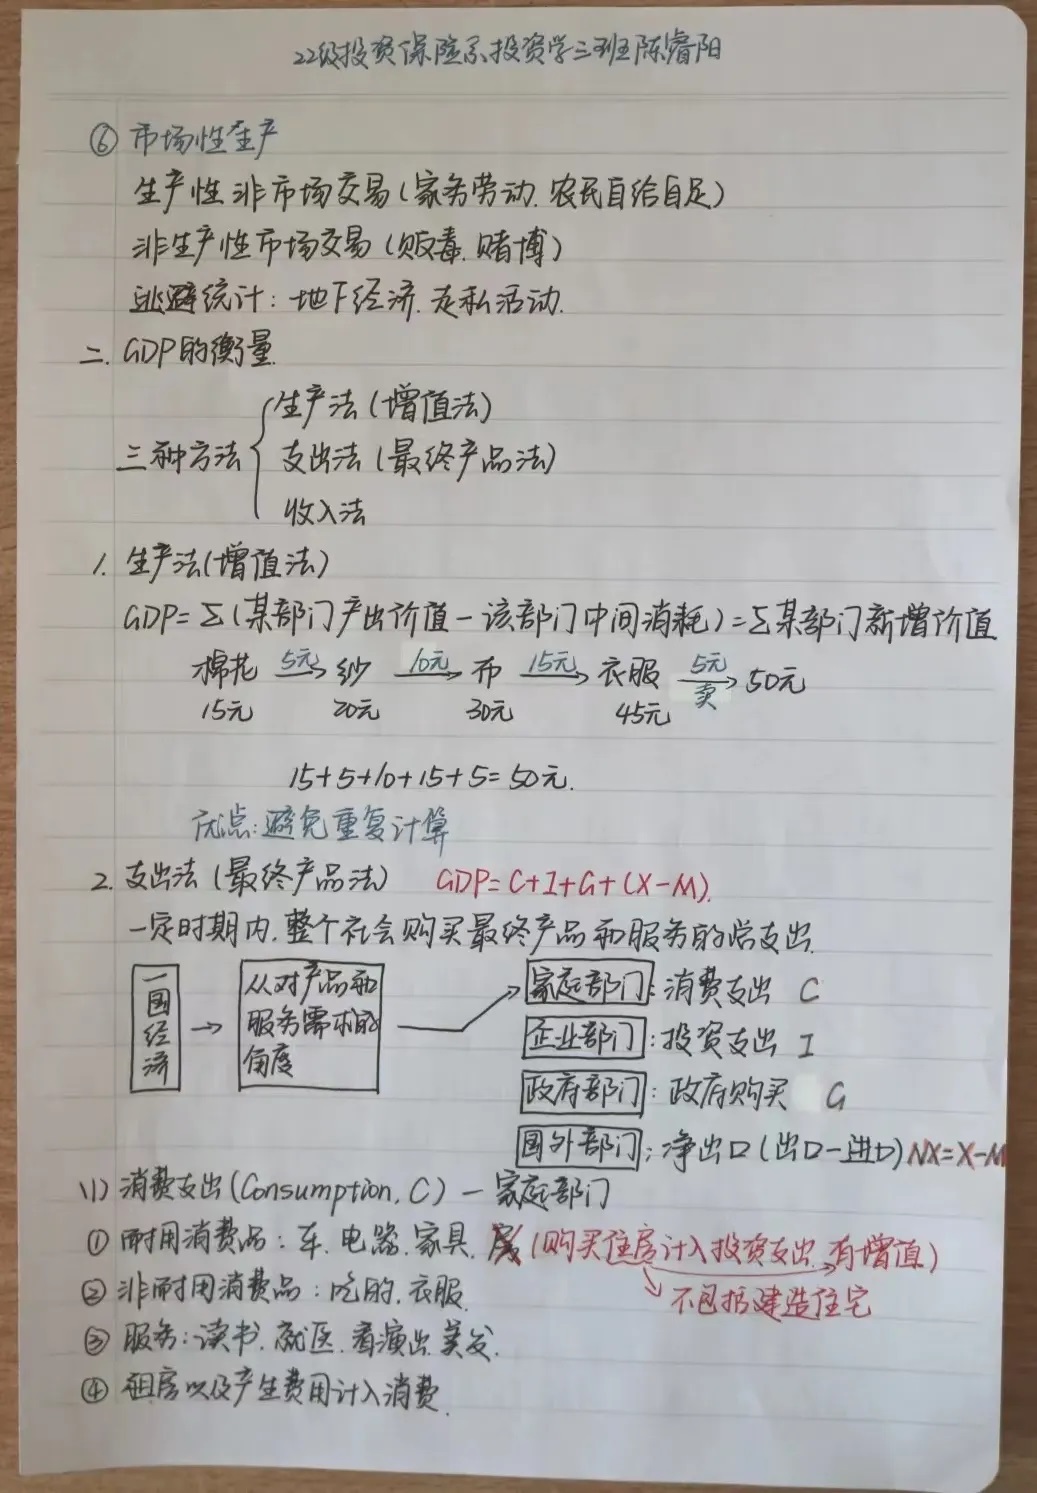 22级投资保险系投资学三班陈睿阳
⑥ 市场性生产
生产性非市场交易(家务劳动.农民自给自足)
非生产性市场交易(贩毒.赌博)
逃避统计:地下经济.走私活动.
二. GDP的衡量.
三种方法
生产法(增值法)
支出法(最终产品法)
收入法
1. 生产法(增值法)
GDP=Σ(某部门产出价值-该部门中间消耗)=Σ某部门新增价值
棉花 5元→ 纱 10元→ 布 15元→ 衣服 5元 卖→ 50元
15元 20元 30元 45元
15+5+10+15+5=50元.
优点:避免重复计算
2. 支出法(最终产品法) GDP=C+I+G+(X-M).
一定时期内.整个社会购买最终产品和服务的总支出.
一国经济 → 从对产品和服务需求的角度 →
家庭部门:消费支出 C
企业部门:投资支出 I
政府部门:政府购买 G
国外部门:净出口(出口-进口) NX=X-M
(1) 消费支出(Consumption, C) — 家庭部门
① 耐用消费品:车.电器.家具.房(购买住房计入投资支出.有增值)
→不包括建造住宅
② 非耐用消费品:吃的.衣服.
③ 服务:读书.就医.看演出.美发.
④ 租房以及产生费用计入消费.